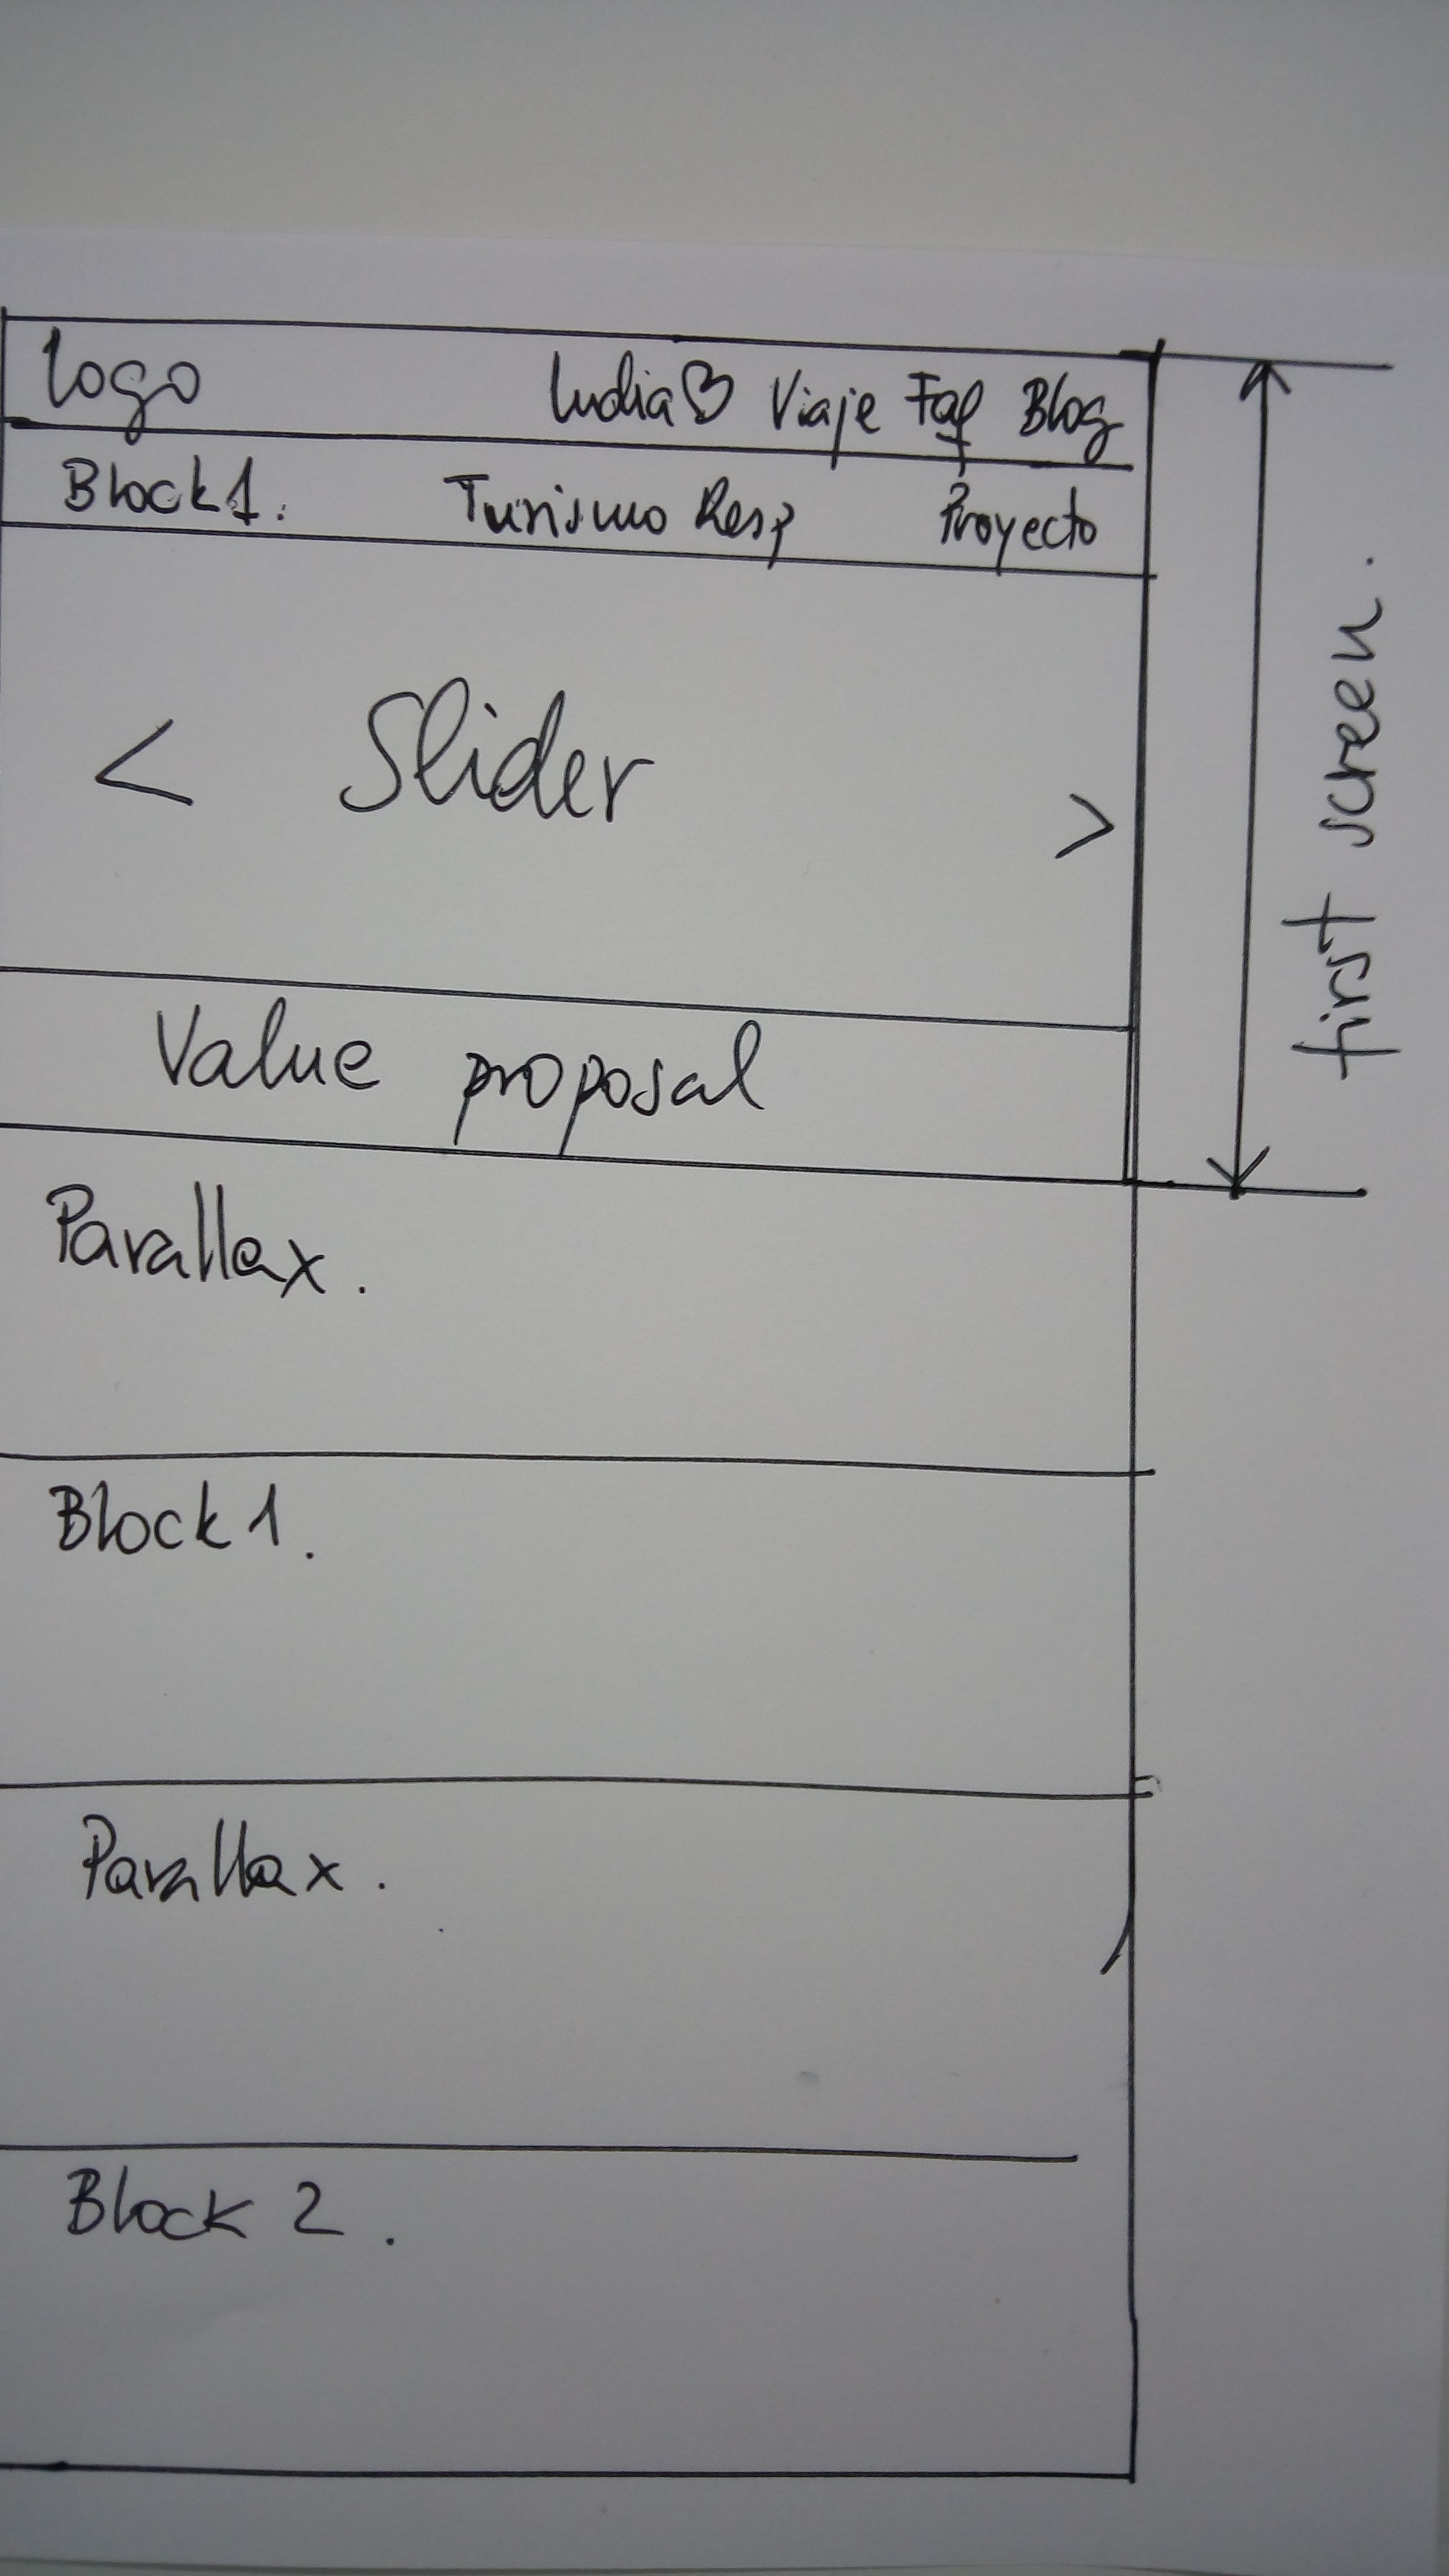 logo India♡ Viaje Faq Blog
Block 1. Turismo Resp Proyecto
< Slider >
Value proposal
first screen.
Parallax.
Block 1.
Parallax.
Block 2.